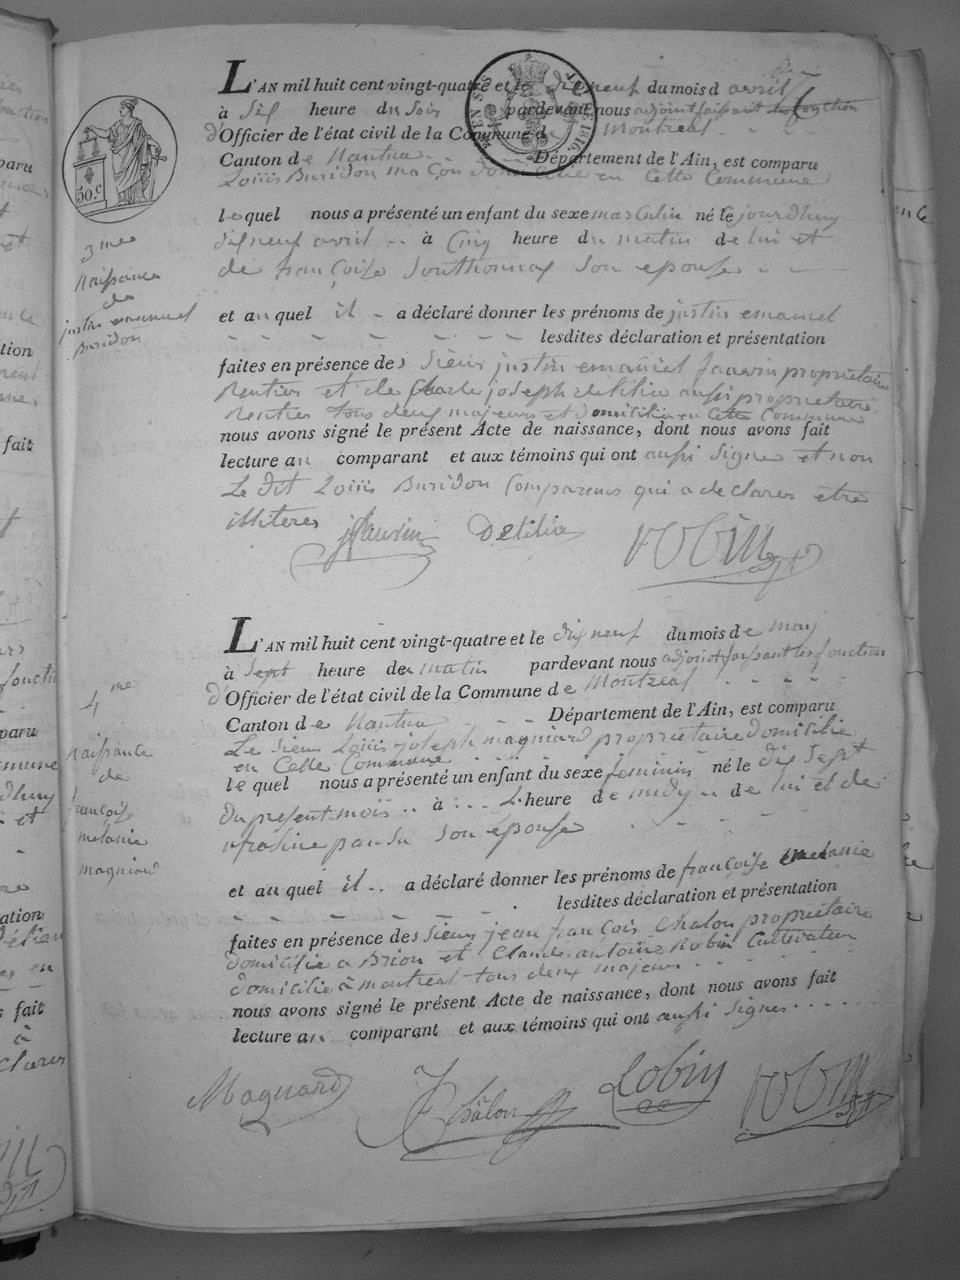 L'AN mil huit cent vingt-quatre et le dixneuf du mois d avril
à Six heure du Soir pardevant nous adjoint faisant les fonction
d'Officier de l'état civil de la Commune de Montreal
Canton de Nantua Département de l'Ain, est comparu
Loüis Buridon maçon en Cette Commune
lequel nous a présenté un enfant du sexe masculin né le jourdhuy
dixneuf avril à Cinq heure du matin de lui et
de françoise Southonnax Son epouse
et auquel il a déclaré donner les prénoms de justin emanuel
lesdites déclaration et présentation
faites en présence des Sieur justin emanuel propriétaire
Rentier et de Charle joseph delilia aussi propriétaire
Rentier tous deux majeurs et domicilié en Cette Commune
nous avons signé le présent Acte de naissance, dont nous avons fait
lecture au comparant et aux témoins qui ont aussi Signe et non
Le dit Loüis Buridon Comparant qui a declarer etre
illiteres
Delilia
Robin
3me
Naissance
de
justin emanuel
Buridon
50.c
1816.
L'AN mil huit cent vingt-quatre et le dixneuf du mois de may
à Sept heure de matin pardevant nous adjoint faisant les fonction
d'Officier de l'état civil de la Commune de Montreal
Canton de Nantua Département de l'Ain, est comparu
Le Sieur Loüis joseph magniard propriétaire domicilié
en Cette Commune
lequel nous a présenté un enfant du sexe feminin né le dix Sept
du present mois à heure de midy de lui et de
Son épouse
et auquel il a déclaré donner les prénoms de françoise melanie
lesdites déclaration et présentation
faites en présence des Sieur jean françois Chalon propriétaire
domicilié a Brion et Claude antoine Robin Cultivateur
domicilié à montreal tous deux majeur
nous avons signé le présent Acte de naissance, dont nous avons fait
lecture au comparant et aux témoins qui ont aussi Signer
Magnard
Châlon
Robin
Robin
4me
Naissance
de
françoise
melanie
magniard